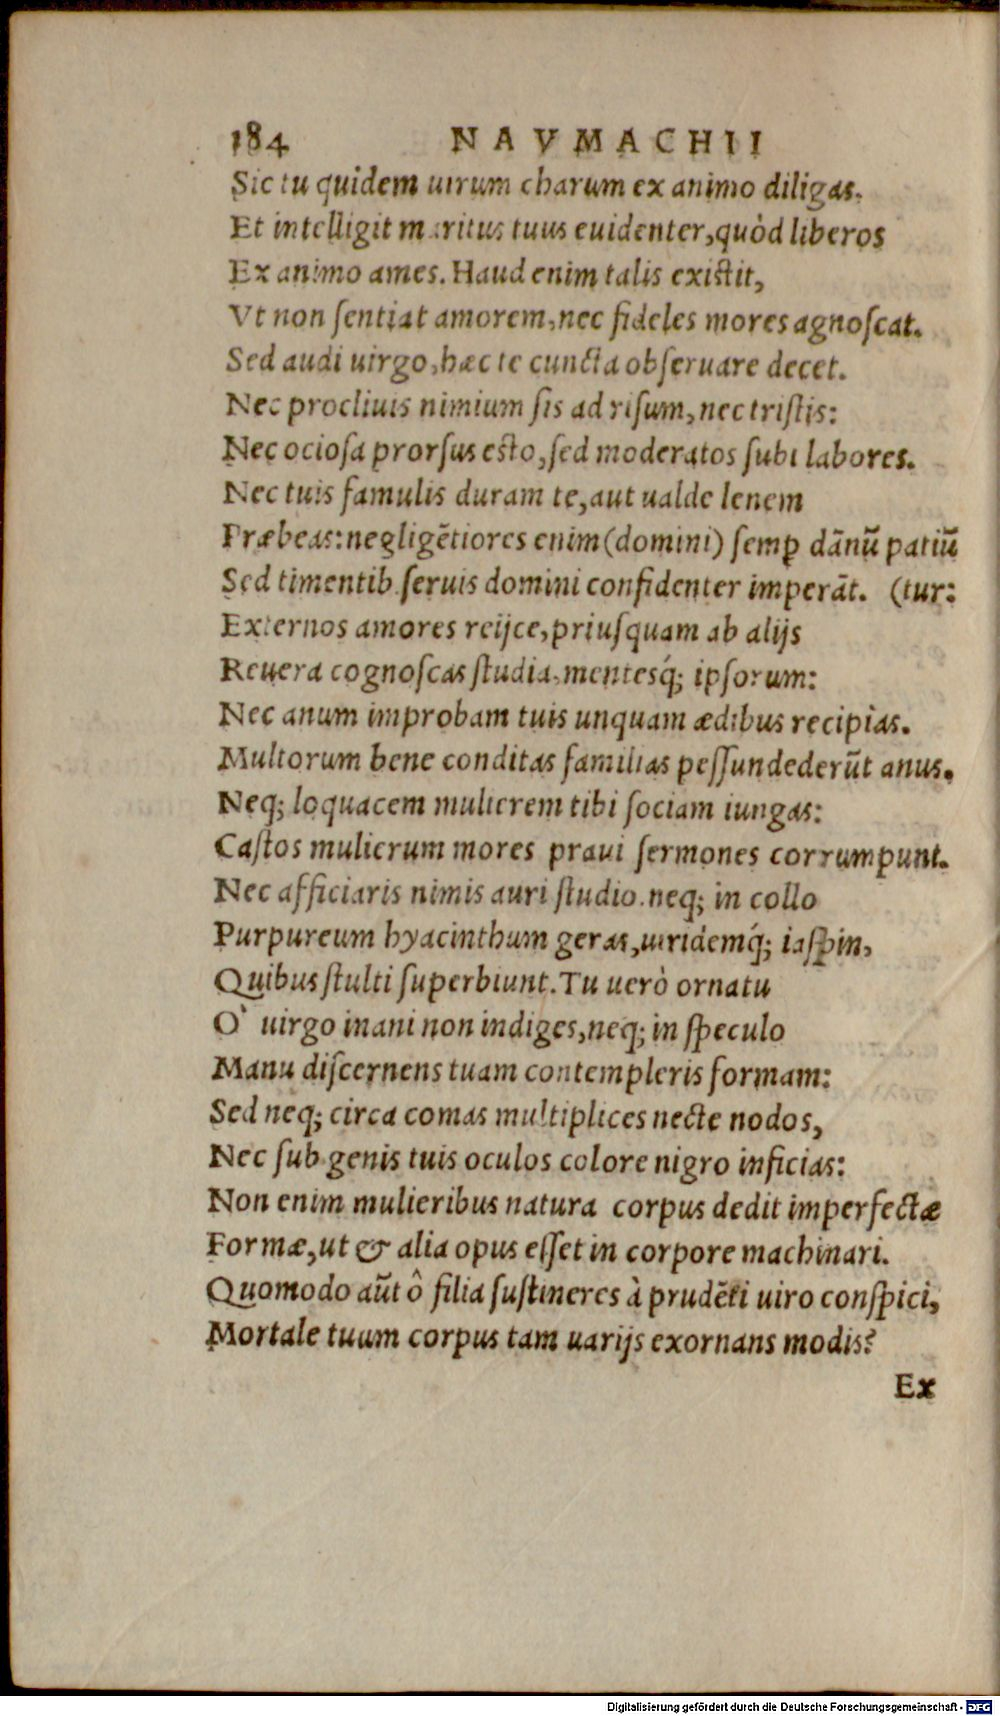 184 NAVMACHII
Sic tu quidem uirum charum ex animo diligas.
Et intelligit maritus tuus euidenter, quòd liberos
Ex animo ames. Haud enim talis existit,
Vt non ſentiat amorem, nec fideles mores agnoſcat.
Sed audi uirgo, hæc te cuncta obſeruare decet.
Nec procliuis nimium ſis ad riſum, nec triſtis:
Nec ocioſa prorſus esto, ſed moderatos ſubi labores.
Nec tuis famulis duram te, aut ualde lenem
Præbeas: negligẽtiores enim (domini) ſemꝑ dãnũ patiũ
Sed timentib. ſeruis domini confidenter imperãt. (tur:
Externos amores reijce, priuſquam ab alijs
Reuera cognoſcas ſtudia, mentesq́; ipſorum:
Nec anum improbam tuis unquam ædibus recipias.
Multorum bene conditas familias peſſundederũt anus.
Neq; loquacem mulierem tibi ſociam iungas:
Caſtos mulierum mores praui ſermones corrumpunt.
Nec afficiaris nimis auri ſtudio. neq; in collo
Purpureum hyacinthum geras, uiridemq́; iaſpin,
Quibus ſtulti ſuperbiunt. Tu uerò ornatu
O` uirgo inani non indiges, neq; in ſpeculo
Manu diſcernens tuam contempleris formam:
Sed neq; circa comas multiplices necte nodos,
Nec ſub genis tuis oculos colore nigro inficias:
Non enim mulieribus natura corpus dedit imperfectæ
Formæ, ut & alia opus eſſet in corpore machinari.
Quomodo aũt ô filia ſuſtineres à prudẽti uiro conſpici,
Mortale tuum corpus tam uarijs exornans modis?
Ex
Digitalisierung gefördert durch die Deutsche Forschungsgemeinschaft - DFG